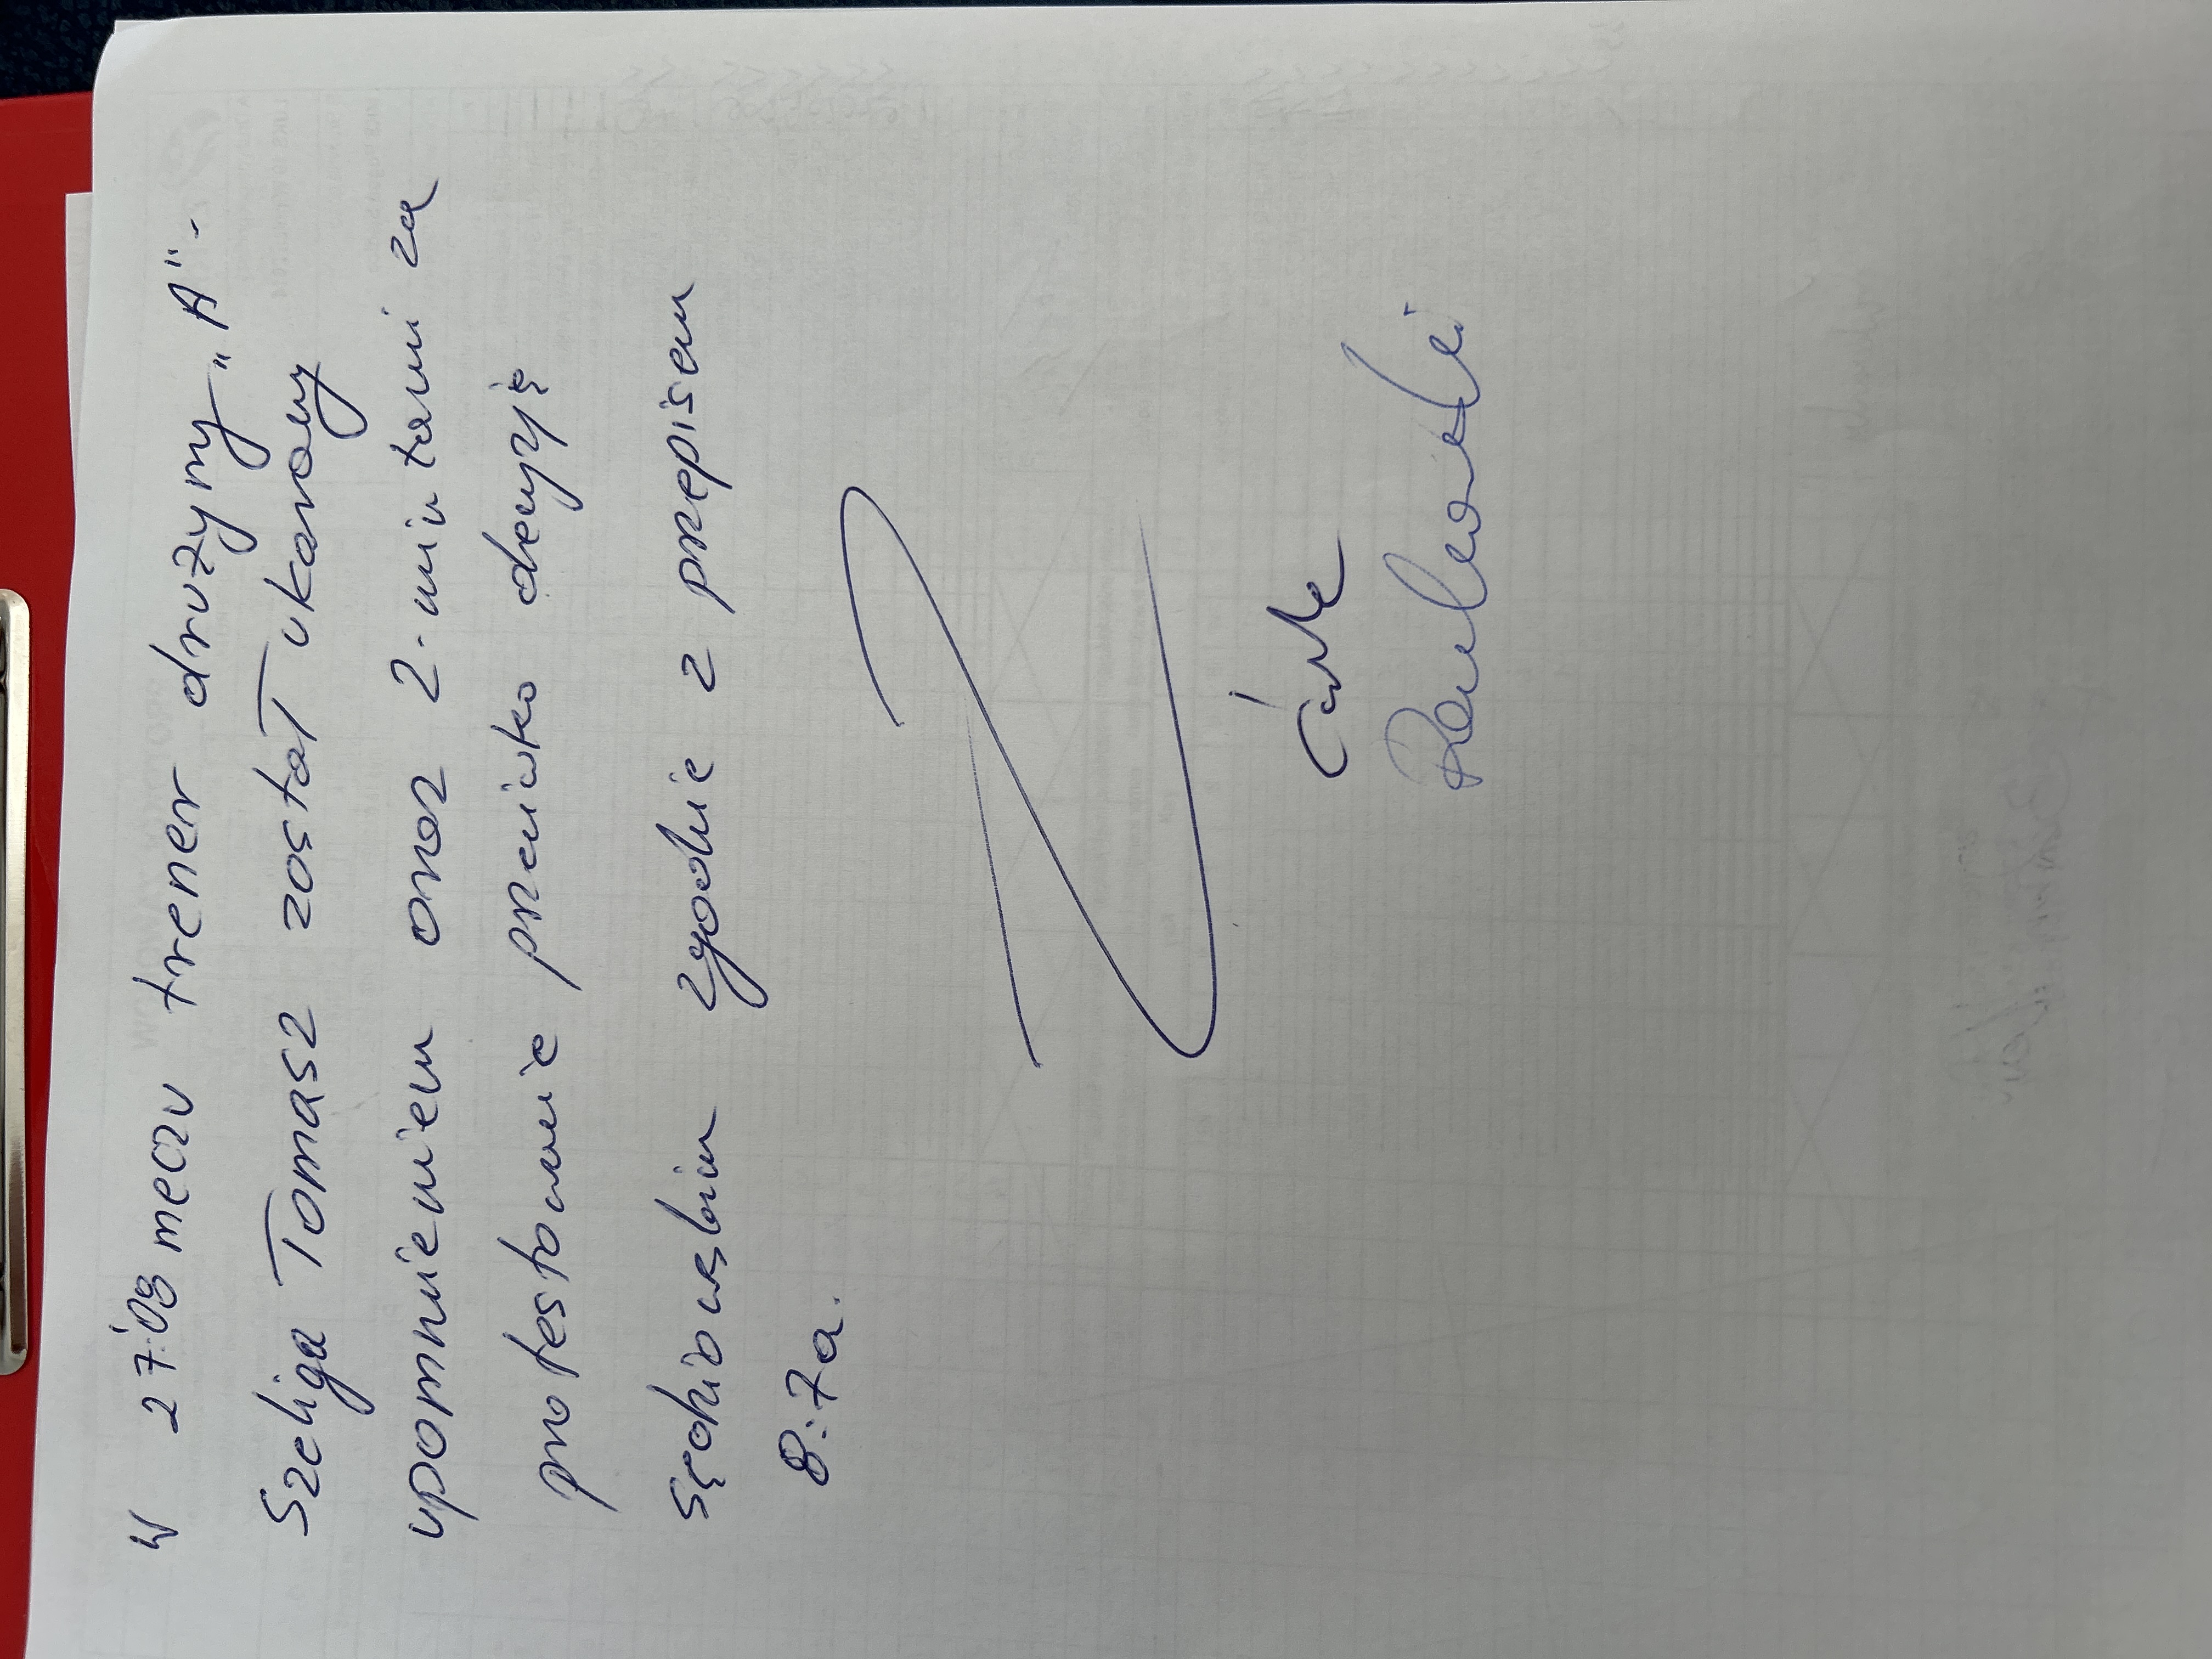 W 27:08 meczu trener drużyny „A" -
Szeliga Tomasz został ukarany
upomnieniem oraz 2-minutami za
protestowanie przeciwko decyzję
sędziowskim zgodnie z przepisem
8:7a.